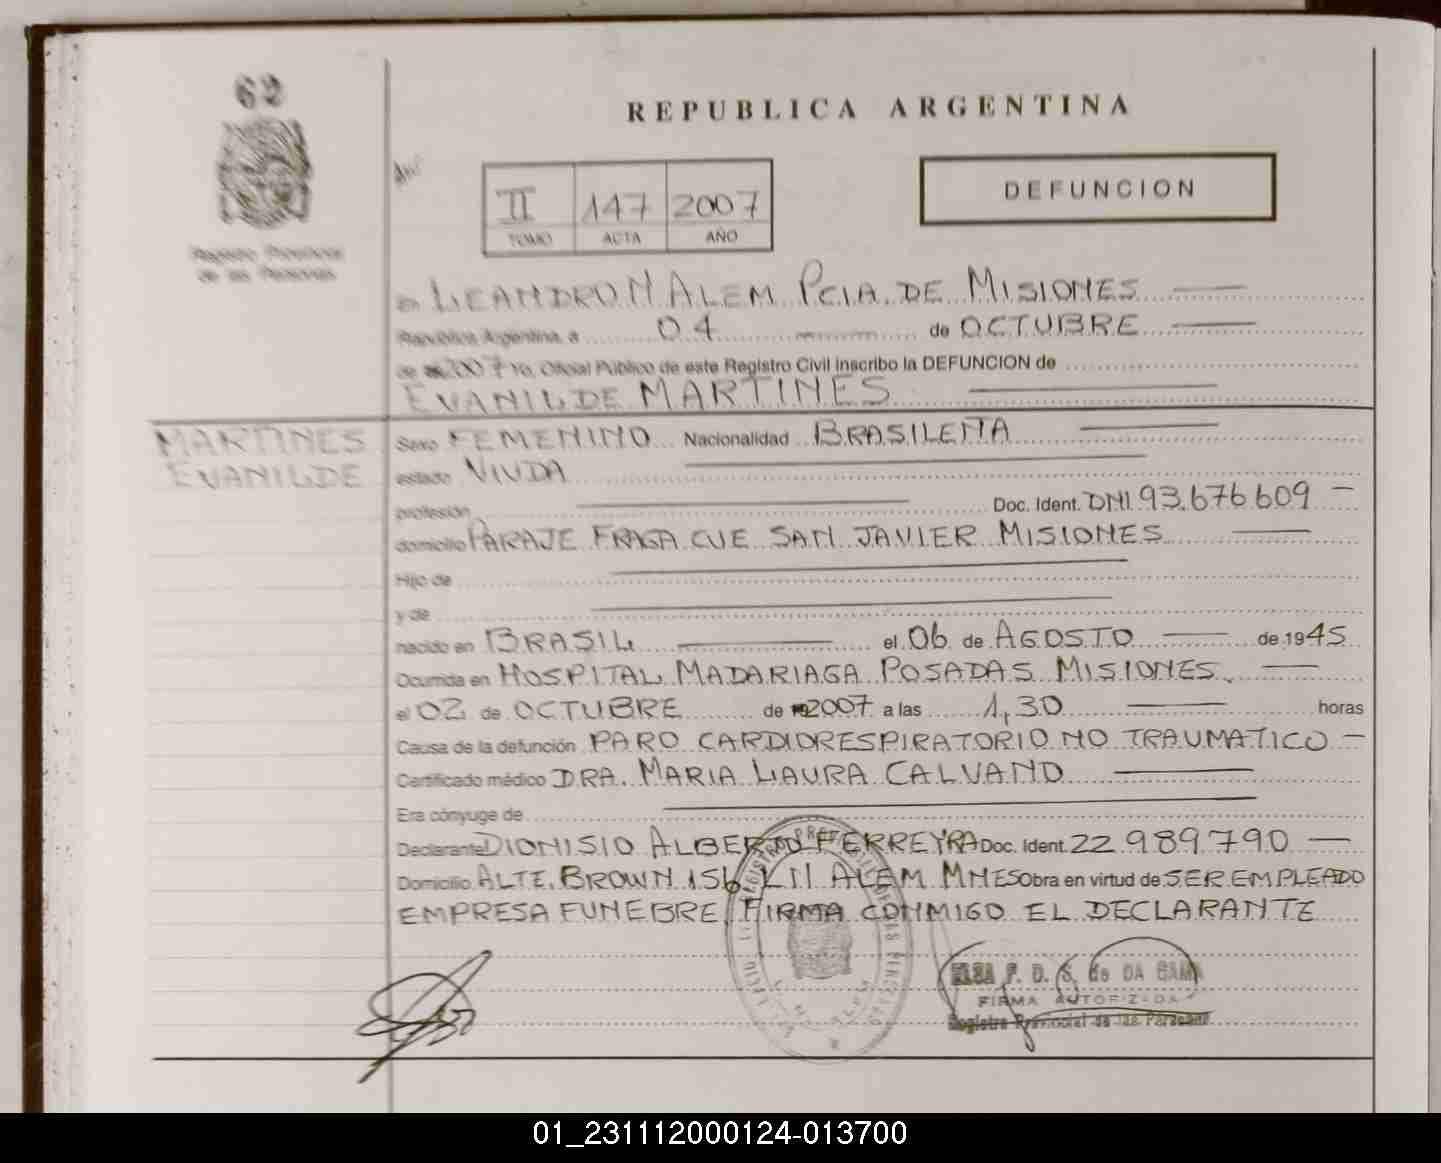 62
REPUBLICA ARGENTINA
Registro Provincial
de las Personas
II 147 2007
TOMO ACTA AÑO
DEFUNCION
en LEANDRO N ALEM PCIA. DE MISIONES
República Argentina, a 04 de OCTUBRE
de 2007 Yo, Oficial Público de este Registro Civil inscribo la DEFUNCION de
EVANILDE MARTINES
MARTINES
EVANILDE
Sexo FEMENINO Nacionalidad BRASILEÑA
estado VIUDA
profesión Doc. Ident. DNI 93.676609
domicilio PARAJE FRAGA CUE SAN JAVIER MISIONES
Hijo de
y de
nacido en BRASIL el 06 de AGOSTO de 1945
Ocurrida en HOSPITAL MADARIAGA POSADAS MISIONES.
el 02 de OCTUBRE de 2007 a las 1,30 horas
Causa de la defunción PARO CARDIORESPIRATORIO NO TRAUMATICO
Certificado médico DRA. MARIA LAURA CALVANO
Era cónyuge de
Declarante DIONISIO ALBERTO FERREYRA Doc. Ident. 22.989.790
Domicilio ALTE. BROWN 156 L N ALEM MNES Obra en virtud de SER EMPLEADO
EMPRESA FUNEBRE, FIRMA CONMIGO EL DECLARANTE
ELSA F. D. S. de DA GAMA
FIRMA AUTORIZADA
Registro Provincial de las Personas
01_231112000124-013700